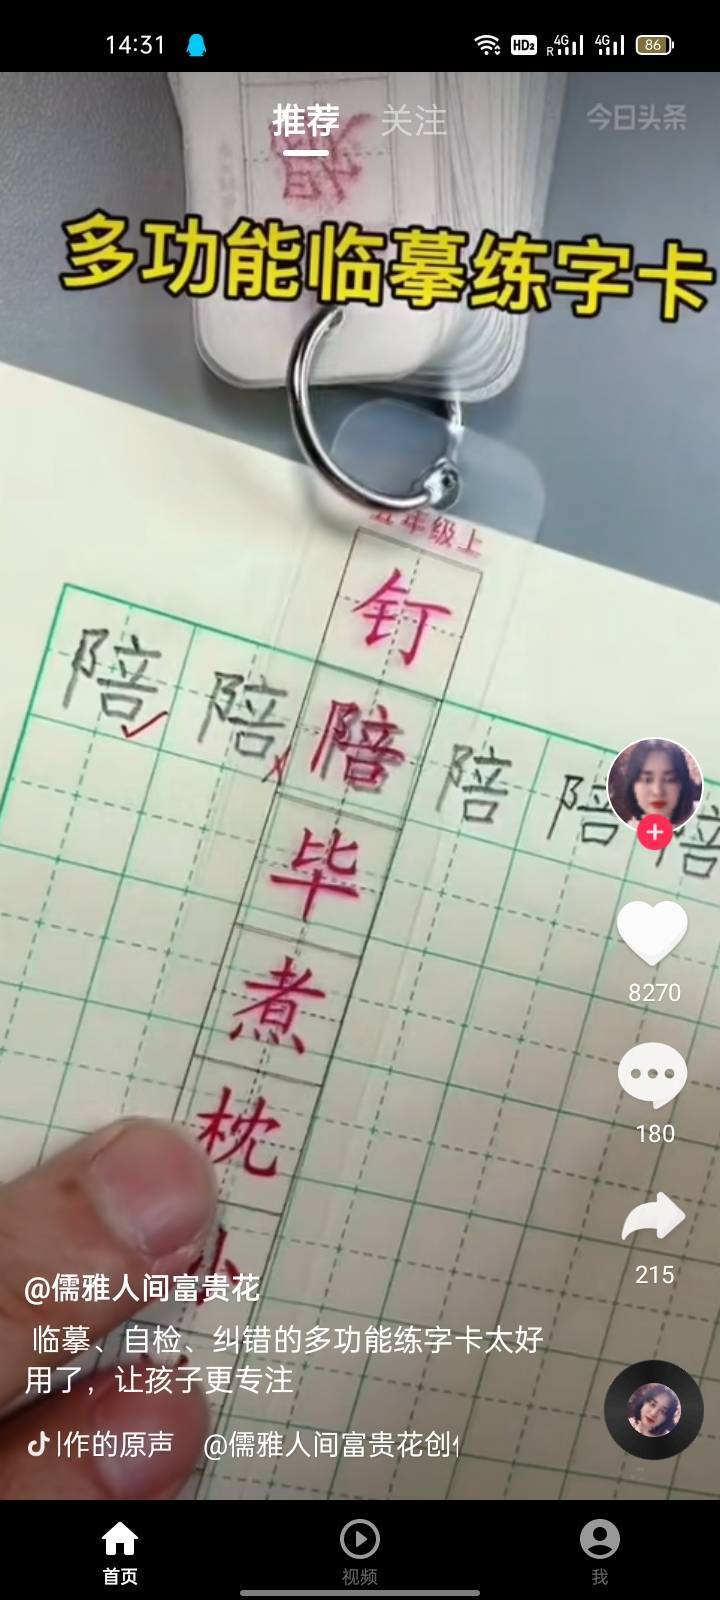 14:31
HD2 R 4G 4G 86
推荐 关注 今日头条
多功能临摹练字卡
五年级上
钉
陪 陪 陪 陪 陪 陪
毕
煮
枕
小
8270
180
215
@儒雅人间富贵花
临摹、自检、纠错的多功能练字卡太好
用了，让孩子更专注
作的原声 @儒雅人间富贵花创
首页 视频 我